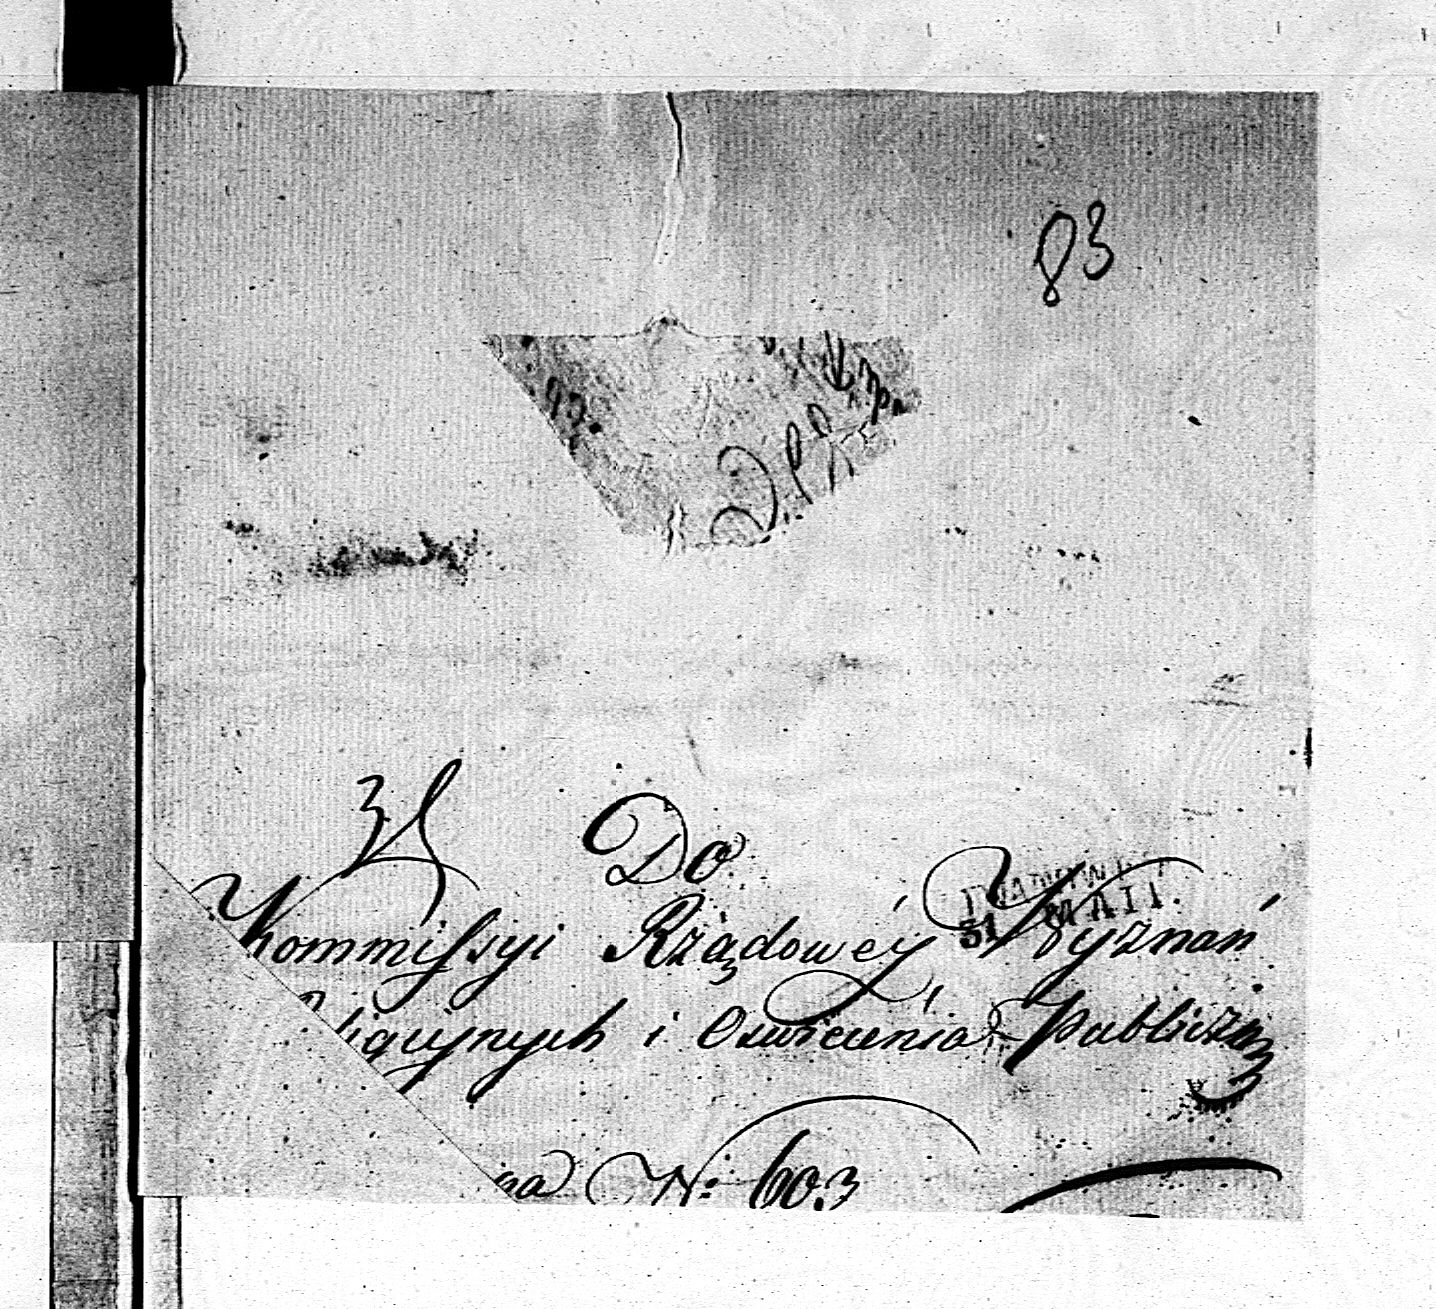 83
Do
Kommissyi Rządowéy Wyznań
ligijnych i Oświecenia Publiczn
31 MAII.
na No: 603